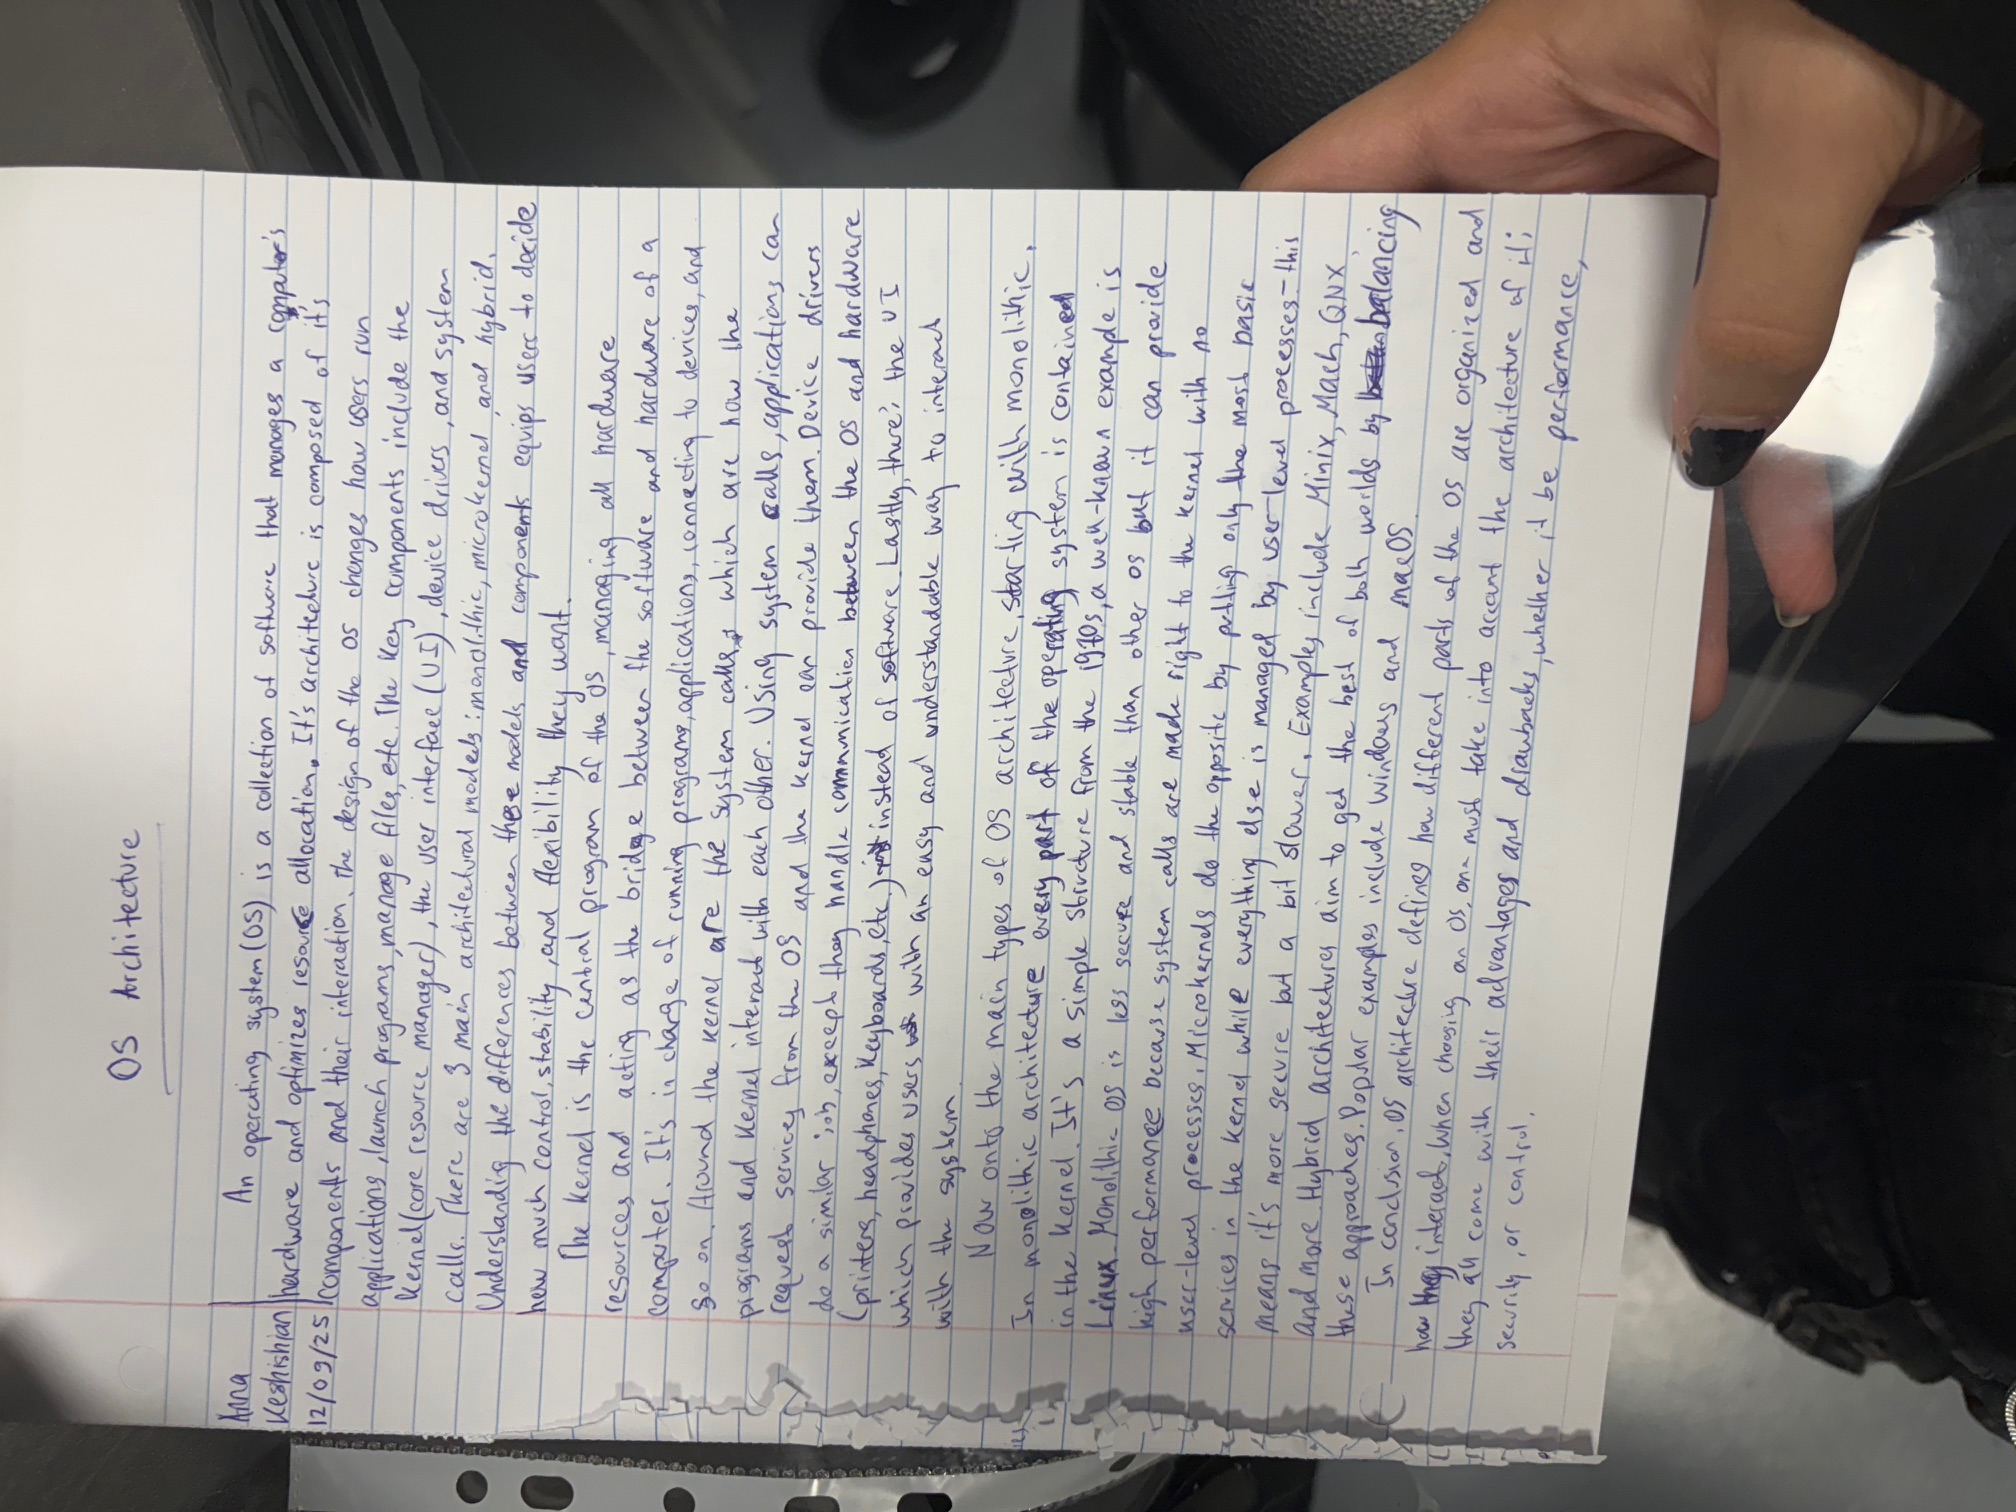 OS Architecture
Anna
Keshishian
12/09/25
An operating system (OS) is a collection of software that manages a computer's
hardware and optimizes resource allocation. It's architecture is composed of it's
components and their interaction. The design of the OS changes how users run
applications, launch programs, manage files, etc. The key components include the
Kernel (core resource manager), the user interface (UI), device drivers, and system
calls. There are 3 main architectural models: monolithic, microkernel, and hybrid.
Understanding the differences between these models and components equips users to decide
how much control, stability, and flexibility they want.
The Kernel is the central program of the OS, managing all hardware
resources and acting as the bridge between the software and hardware of a
computer. It's in charge of running programs, applications, connecting to devices, and
so on. Around the Kernel are the system calls, which are how the
programs and Kernel interact with each other. Using system calls, applications can
request services from the OS and the Kernel can provide them. Device drivers
do a similar job, except they handle communication between the OS and hardware
(printers, headphones, Keyboards, etc.) instead of software. Lastly, there's the UI
which provides users with an easy and understandable way to interact
with the system.
Now onto the main types of OS architecture, starting with monolithic.
In monolithic architecture every part of the operating system is contained
in the Kernel. It's a simple structure from the 1970s, a well-known example is
Linux. Monolithic OS is less secure and stable than other OS but it can provide
high performance because system calls are made right to the kernel with no
user-level processes. Microkernels do the opposite by putting only the most basic
services in the kernel while everything else is managed by user-level processes - this
means it's more secure but a bit slower. Examples include Minix, Mach, QNX,
and more. Hybrid architectures aim to get the best of both worlds by balancing
these approaches. Popular examples include Windows and macOS.
In conclusion, OS architecture defines how different parts of the OS are organized and
how they interact. When choosing an OS, one must take into account the architecture of it;
they all come with their advantages and drawbacks, whether it be performance,
security, or control.